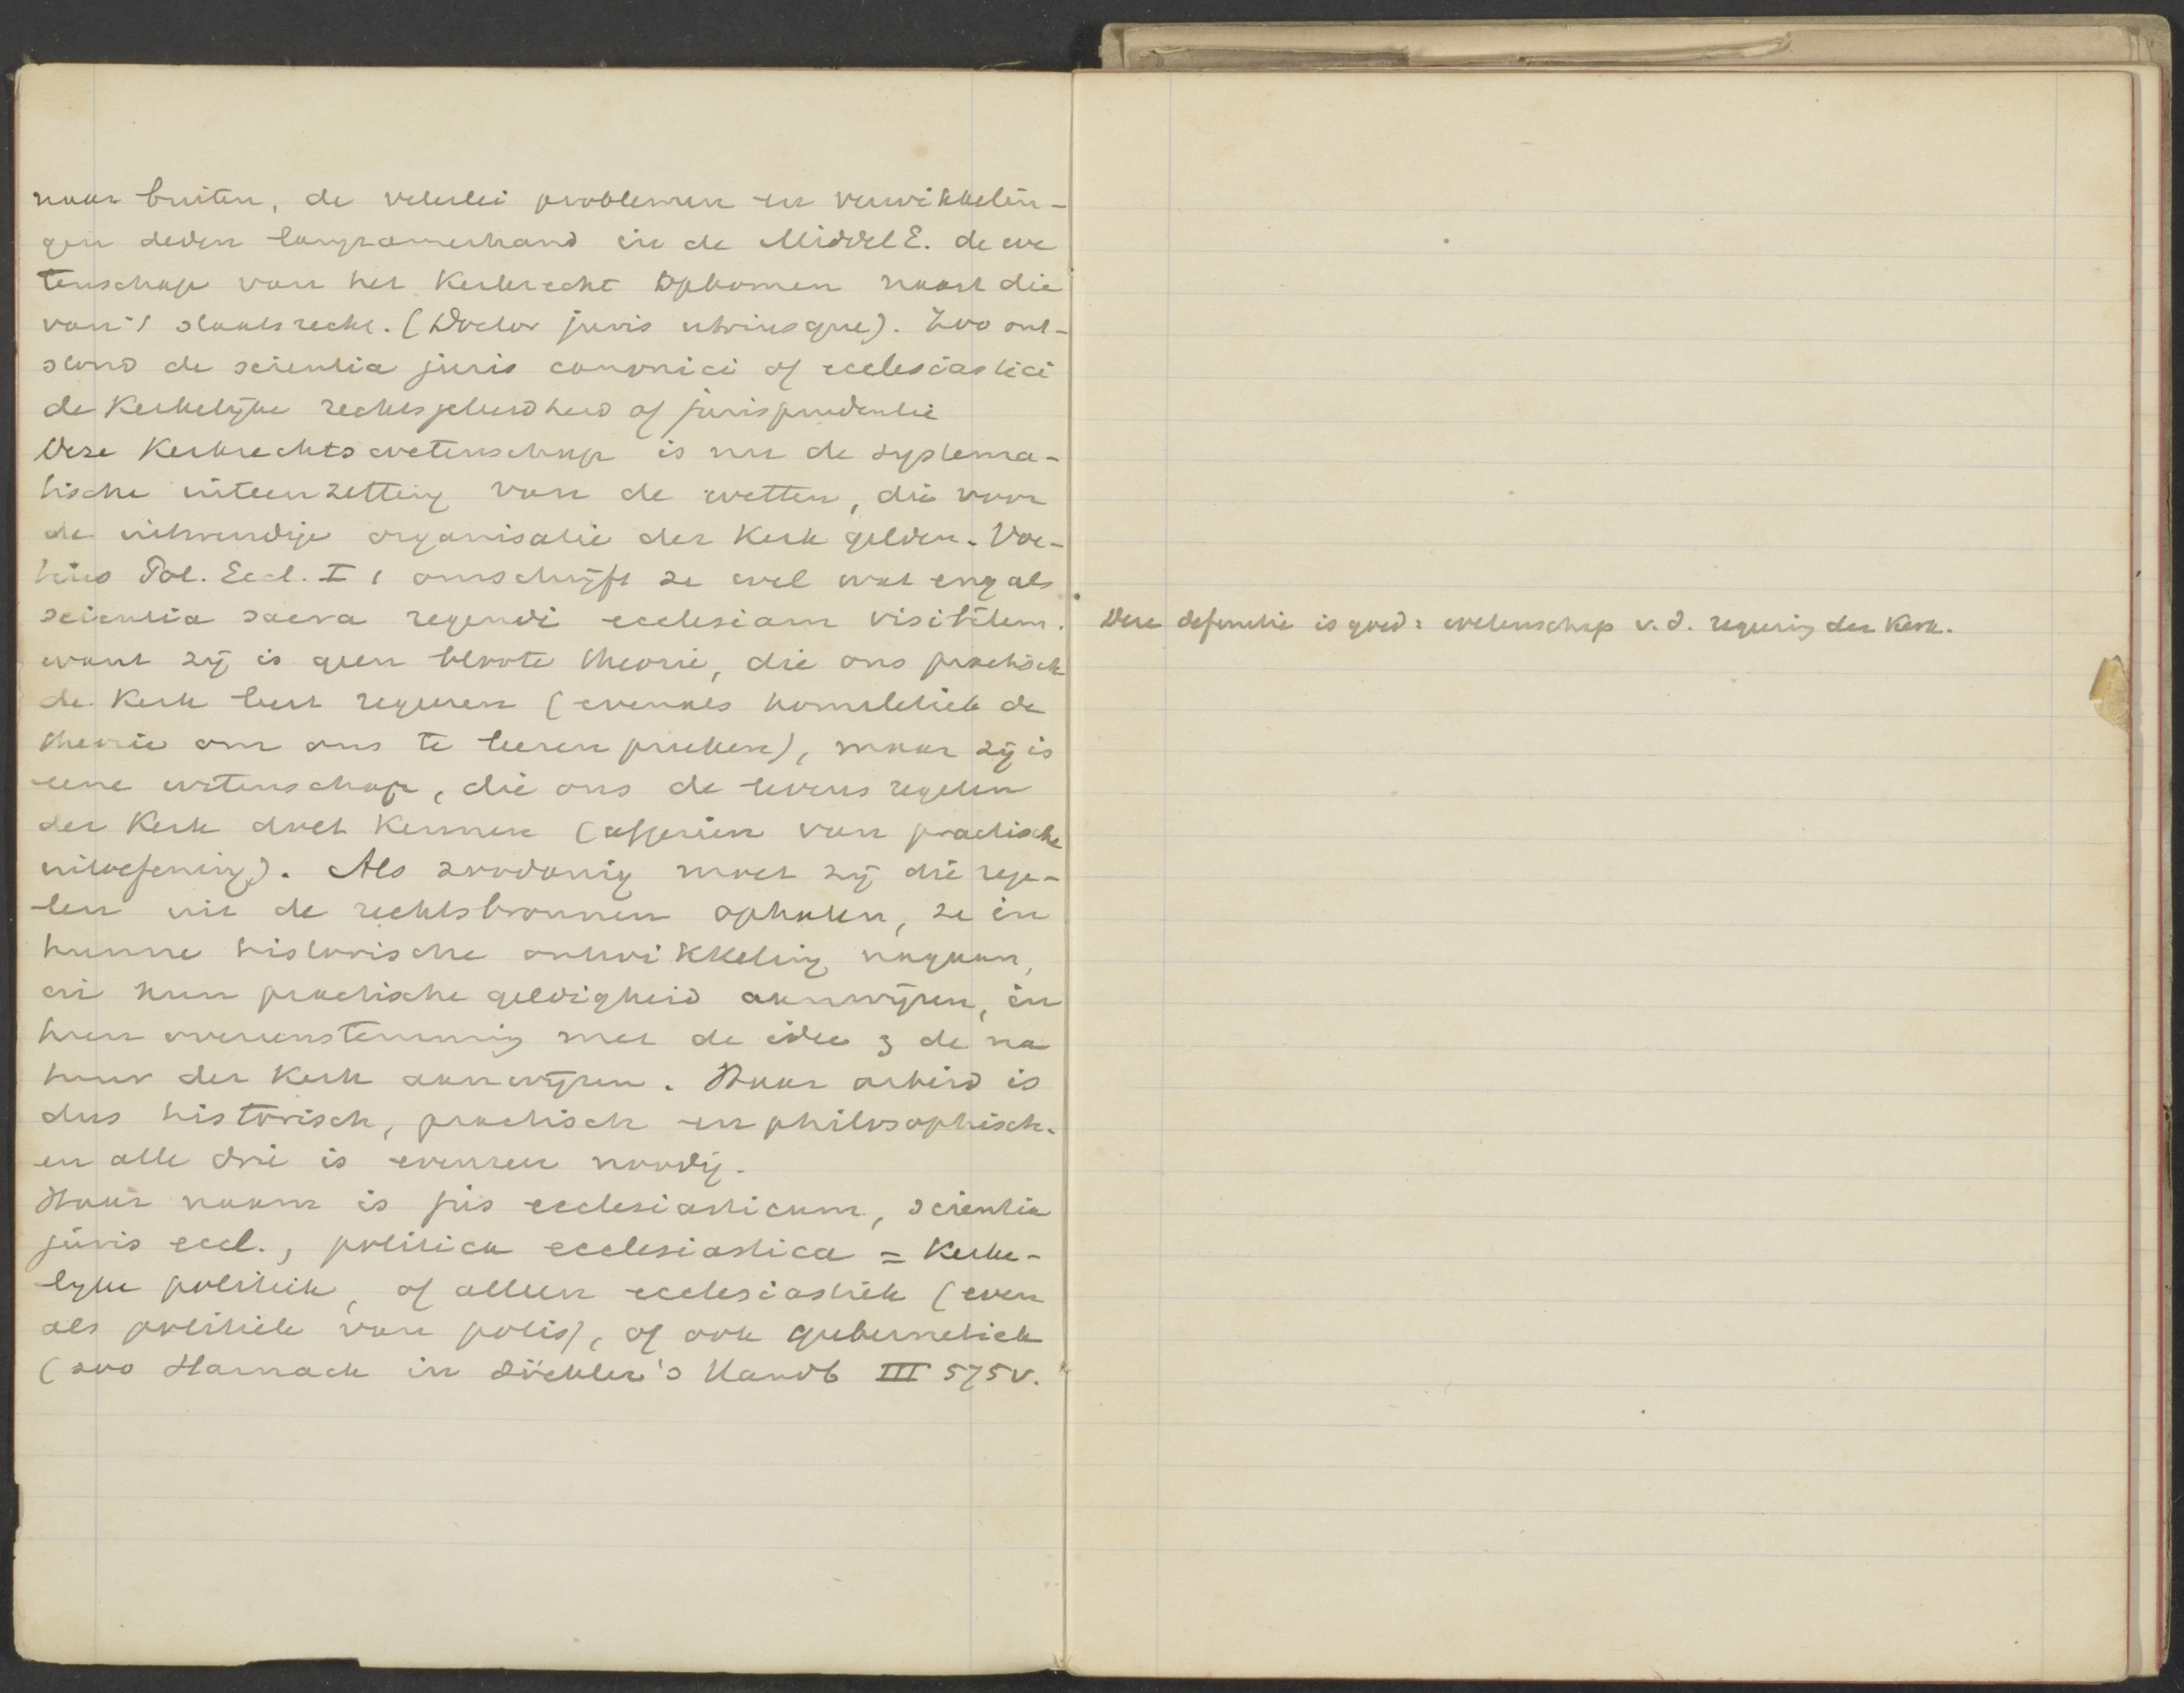 naar buiten, de velerlei problemen en verwikkelin-
gen deden langzamerhand in de MiddelE. de we
tenschap van het Kerkrecht opkomen naast die
van 't staatsrecht. (Doctor juris utriusque). Zoo ont-
stond de scientia juris canonici of ecclesiastici
de Kerkelijke rechtsgeleerdheid of jurisprudentie
Deze Kerkrechtswetenschap is nu de systema-
tische uiteenzetting van de wetten, die voor
de uitwendige organisatie der Kerk gelden. Voe-
tius Pol. Eccl. I 1 omschrijft ze wel wat eng als
scientia sacra regendi ecclesiam visibilem.
want zij is geen bloote theorie, die ons practisch
de Kerk leert regeeren (evenals homiletiek de
theorie om ons te leeren preeken), maar zij is
eene wetenschap, die ons de levensregelen
der Kerk doet Kennen (afgezien van practische
uitoefening). Als zoodanig moet zij die rege-
len uit de rechtsbronnen ophalen, ze in
hunne historische ontwikkeling nagaan,
en hun practische geldigheid aanwijzen, in
hun overeenstemming met de idee & de na
tuur der Kerk aanwijzen. Haar arbeid is
dus historisch, practisch en philosophisch.
en alle drie is evenzeer noodig.
Haar naam is jus ecclesiasticum, scientia
juris eccl., politica ecclesiastica = Kerke-
lijke politiek, of alleen ecclesiastiek (even
als politiek van polis), of ook gubernetiek
(zoo Harnack in Zöckler's Handb III 575v.
Deze definitie is goed: wetenschap v. d. regeering der Kerk.